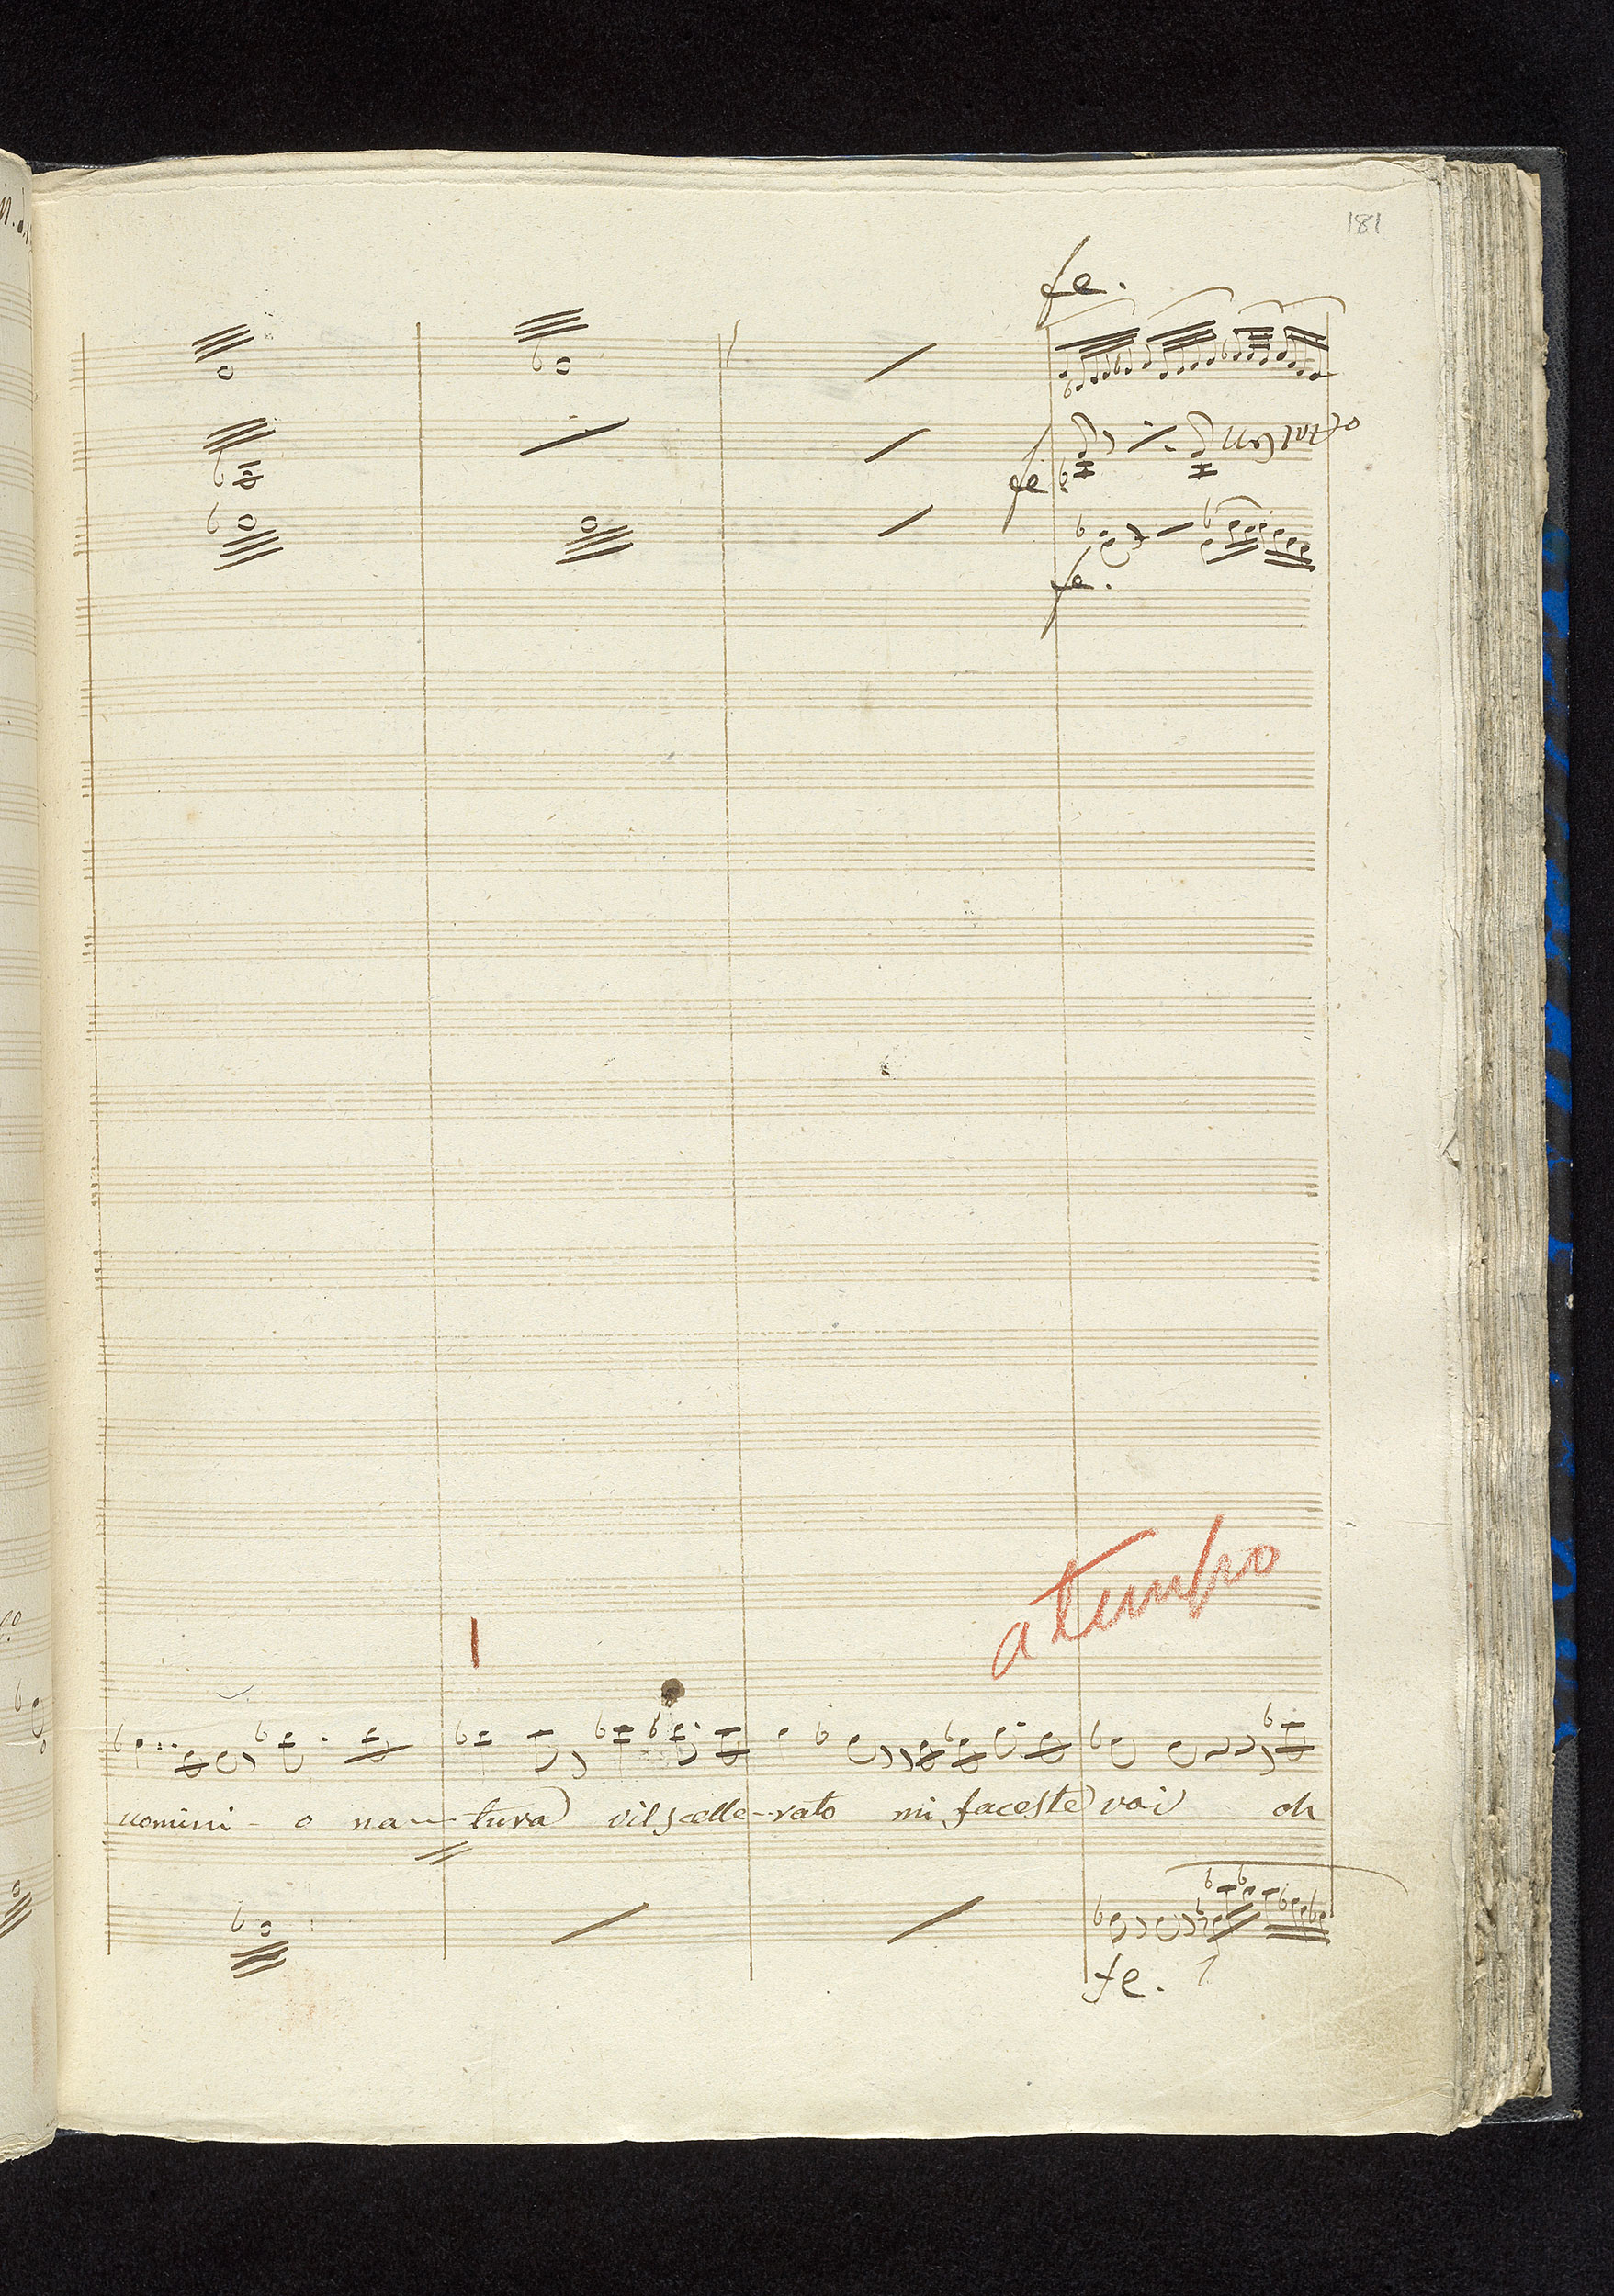 181
fe.
fe
fe.
a tempo
uomini - o na - tura vil scelle - rato mi faceste voi oh
fe.